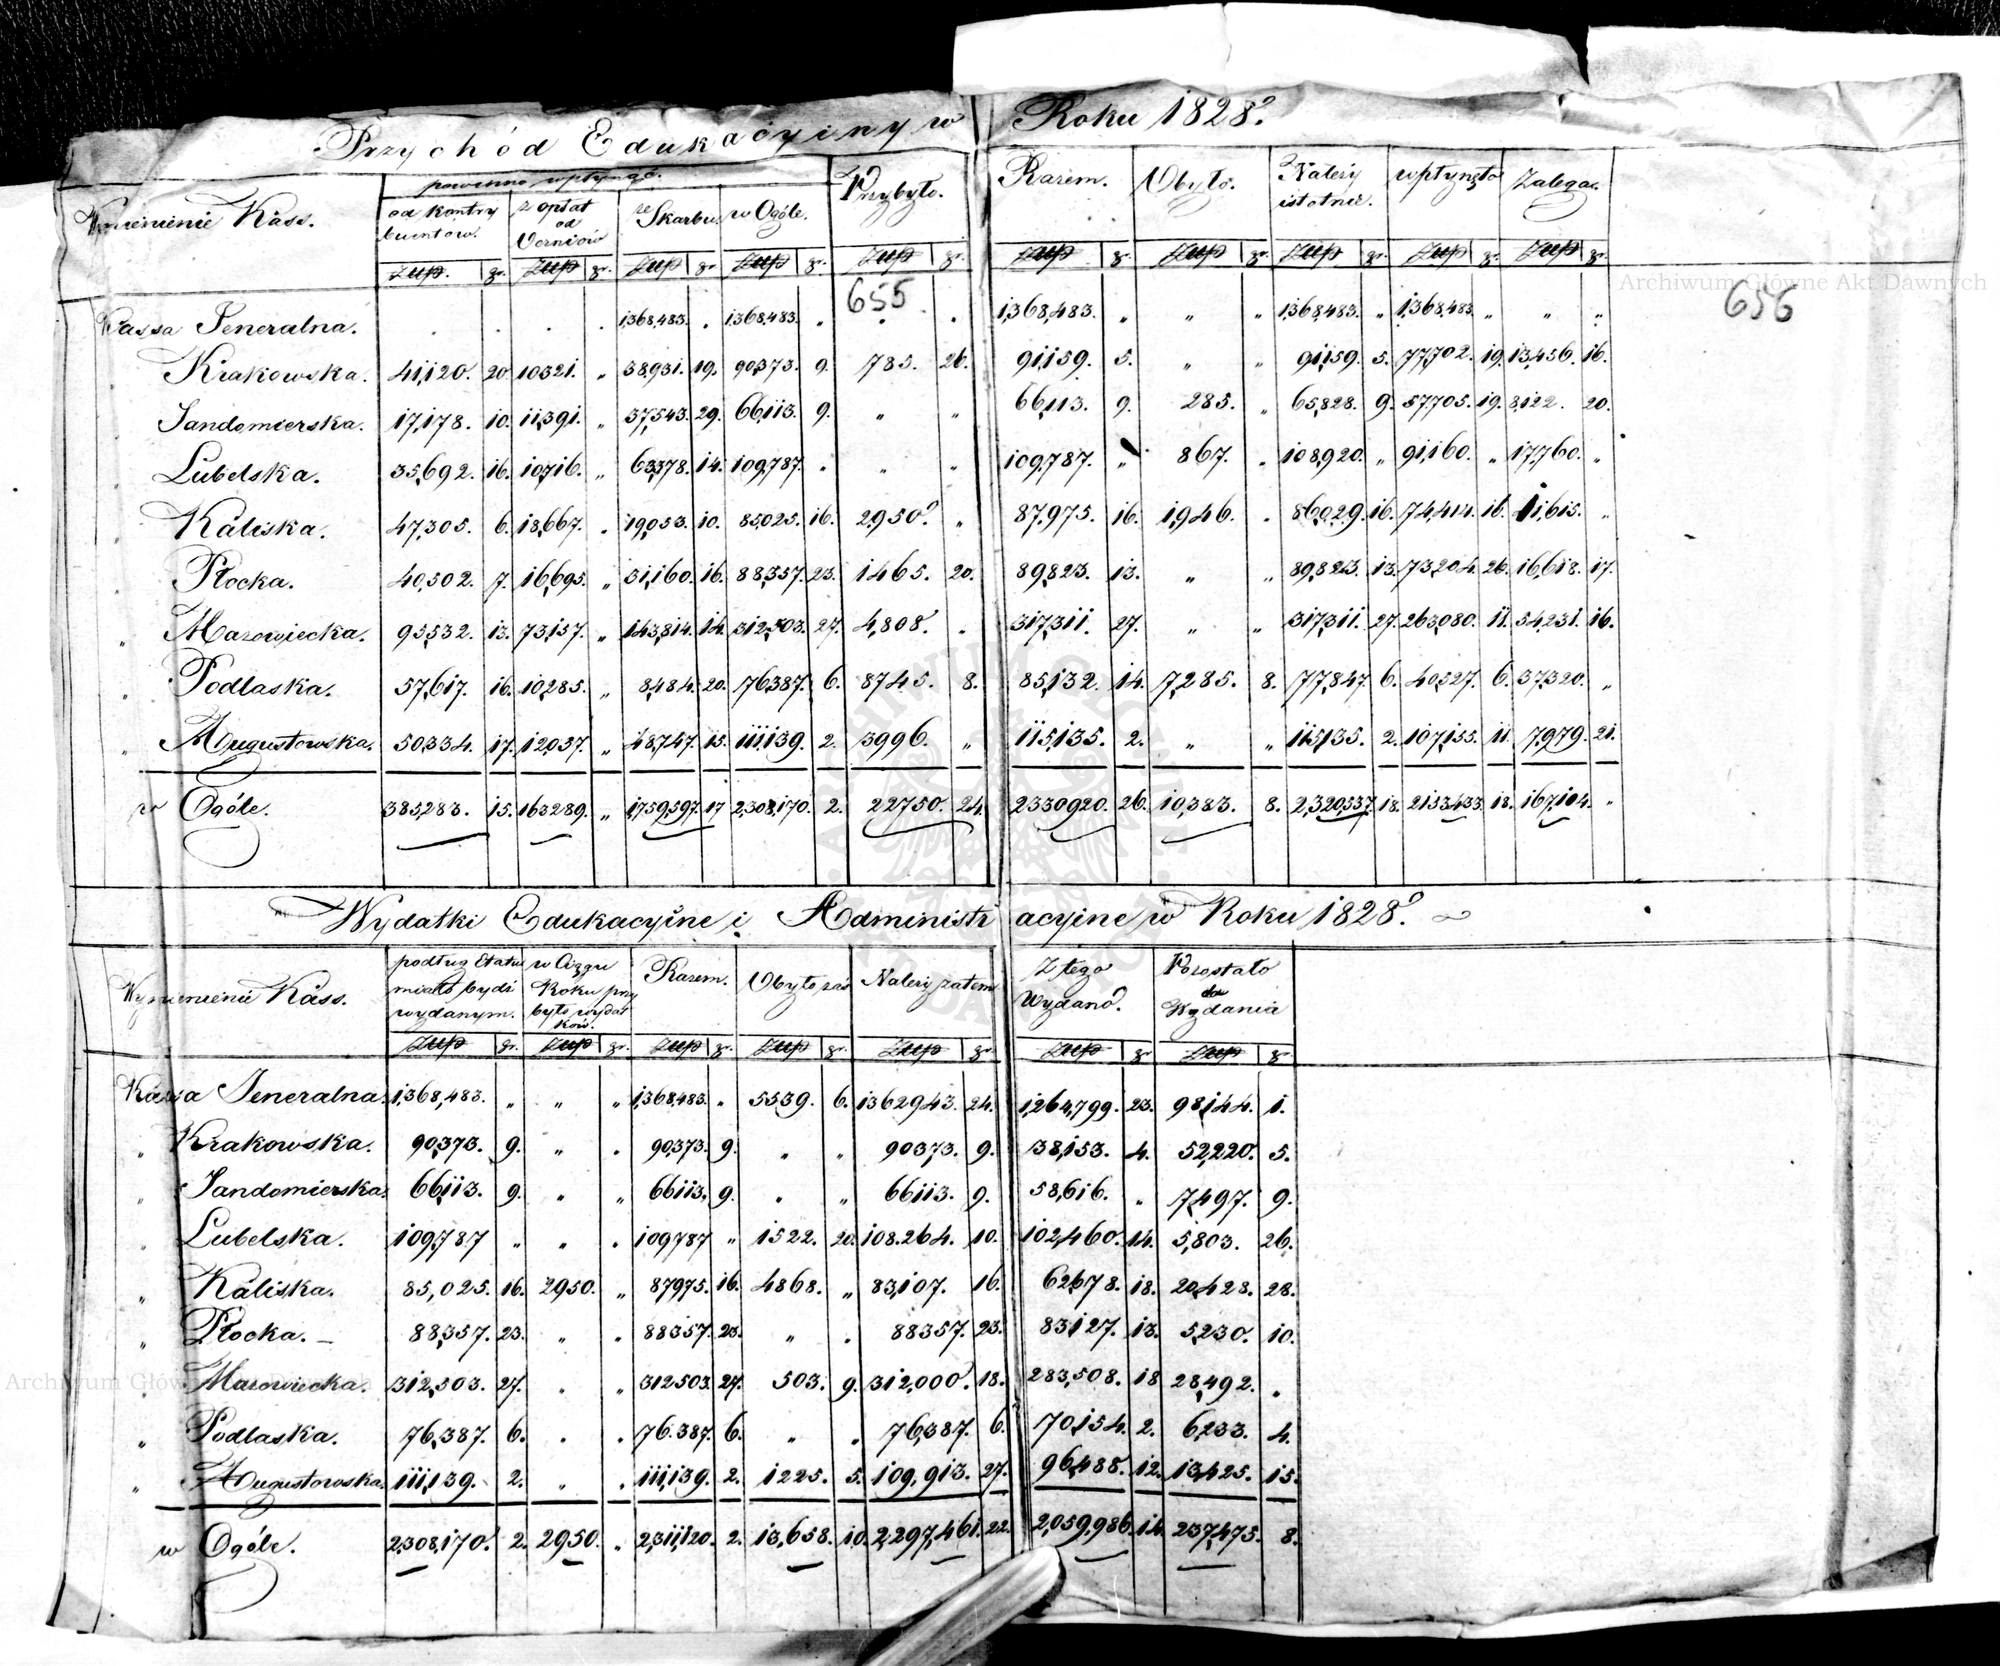 Przychód Edukacyiny w Roku 1828º.
Wymienienie Kass.
powinno wpłynąć.
od kontry
buentów.
z opłat
od
Uczniów
ze
Skarbu.
w Ogóle.
Przybyło.
Razem.
Ubyło.
Należy
istotnie.
wpłynęło
Zalega.
Złłp. gr. Złłp gr. Złłp gr Złłp gr. Złłp gr. Złłp gr. Złłp gr. Złłp gr. Złłp gr. Złłp gr.
655
656
Kassa Jeneralna. . . . . 1,368,483. „ 1,368,483. „ . . 1,368,483. „ „ „ 1,368,483. „ 1,368,483. „ „ „
„ Krakowska. 41,120. 20 10321. „ 38,931. 19. 90373. 9. 785. 26. 91,159. 5. „ „ 91,159. 5. 77,702. 19. 13,456. 16.
„ Sandomierska. 17,178. 10. 11,391. „ 37,543. 29. 66,113. 9. „ „ 66,113. 9. 285. „ 65,828. 9. 57,705. 19. 8,122. 20.
„ Lubelska. 35,692. 16. 10,716. „ 63,378. 14. 109,787. „ „ „ 109,787. „ 867. „ 108,920. „ 91,160. „ 17,760. „
„ Kaliska. 47,305. 6. 18,667. „ 19,053. 10. 85,025. 16. 2,950. „ 87,975. 16. 1,946. „ 86,029. 16. 74,414. 16. 11,615. „
„ Płocka. 40,502. 7. 16,695. „ 31,160. 16. 88,357. 23. 1465. 20. 89,823. 13. „ „ 89,823. 13. 73,204. 26. 16,618. 17.
„ Mazowiecka. 95,532. 13. 73,157. „ 143,814. 14. 312,503. 27. 4,808. „ 317,311. 27. „ „ 317,311. 27. 263,080. 11. 54,231. 16.
„ Podlaska. 57,617. 16. 10,285. „ 8,484. 20. 76,387. 6. 8745. 8. 85,132. 14. 7,285. 8. 77,847. 6. 40,527. 6. 37,320. „
„ Augustowska. 50,334. 17. 12,037. „ 48,747. 15. 111,139. 2. 3996. „ 115,135. 2. „ „ 115,135. 2. 107,155. 11. 7,979. 21.
w Ogóle. 385,283. 15. 163,289. „ 1,759,597. 17 2,308,170. 2. 22750. 24. 2330920. 26. 10,383. 8. 2,320,537. 18. 2153,433. 18. 167,104. „
Wydatki Edukacyine i Administracyine w Roku 1828º.
Wymienienie Kass.
podług Etatu
miało bydź
wydanym.
w Ciągu
Roku przy
było wydat
ków.
Razem.
Ubyło zaś
Należy zatem
Z tego
Wydano.
Pozostało
do
Wydania
Złłp gr. Złłp gr. Złłp gr. Złłp gr. Złłp gr. Złłp gr Złłp gr.
Kassa Jeneralna. 1,368,483. „ „ „ 1,368,483. „ 5539. 6. 1362943. 24. 1,264,799. 23. 98,144. 1.
„ Krakowska. 90,373. 9. „ „ 90,373. 9. „ „ 90373. 9. 38,153. 4. 52,220. 5.
„ Sandomierska. 66,113. 9. „ „ 66113. 9. „ „ 66113. 9. 58,616. „ 7,497. 9.
„ Lubelska. 109,787 „ „ „ 109787 „ 1522. 20. 108.264. 10. 102,460. 14. 5,803. 26.
„ Kaliska. 85,025. 16. 2950. „ 87975. 16. 4868. „ 83,107. 16. 62,678. 18. 20,428. 28.
„ Płocka. – 88,357. 23. „ „ 88357. 23. „ „ 88357. 23. 83,127. 13. 5,230. 10.
„ Mazowiecka. 312,503. 27. „ „ 312503. 27. 503. 9. 312,000. 18. 283,508. 18 28,492. „
„ Podlaska. 76,387. 6. „ „ 76.387. 6. „ „ 76,387. 6. 70,154. 2. 6,233. 4.
„ Augustowska. 111,139. 2. „ „ 111,139. 2. 1225. 5. 109,913. 27. 96,488. 12. 13,425. 15.
w Ogóle. 2,308,170. 2. 2950. „ 2,311,120. 2. 13,658. 10. 2,297,461. 22. 2,059,986. 14. 237,475. 8.
Archiwum Główne Akt Dawnych
Archiwum Główne Akt Dawnych